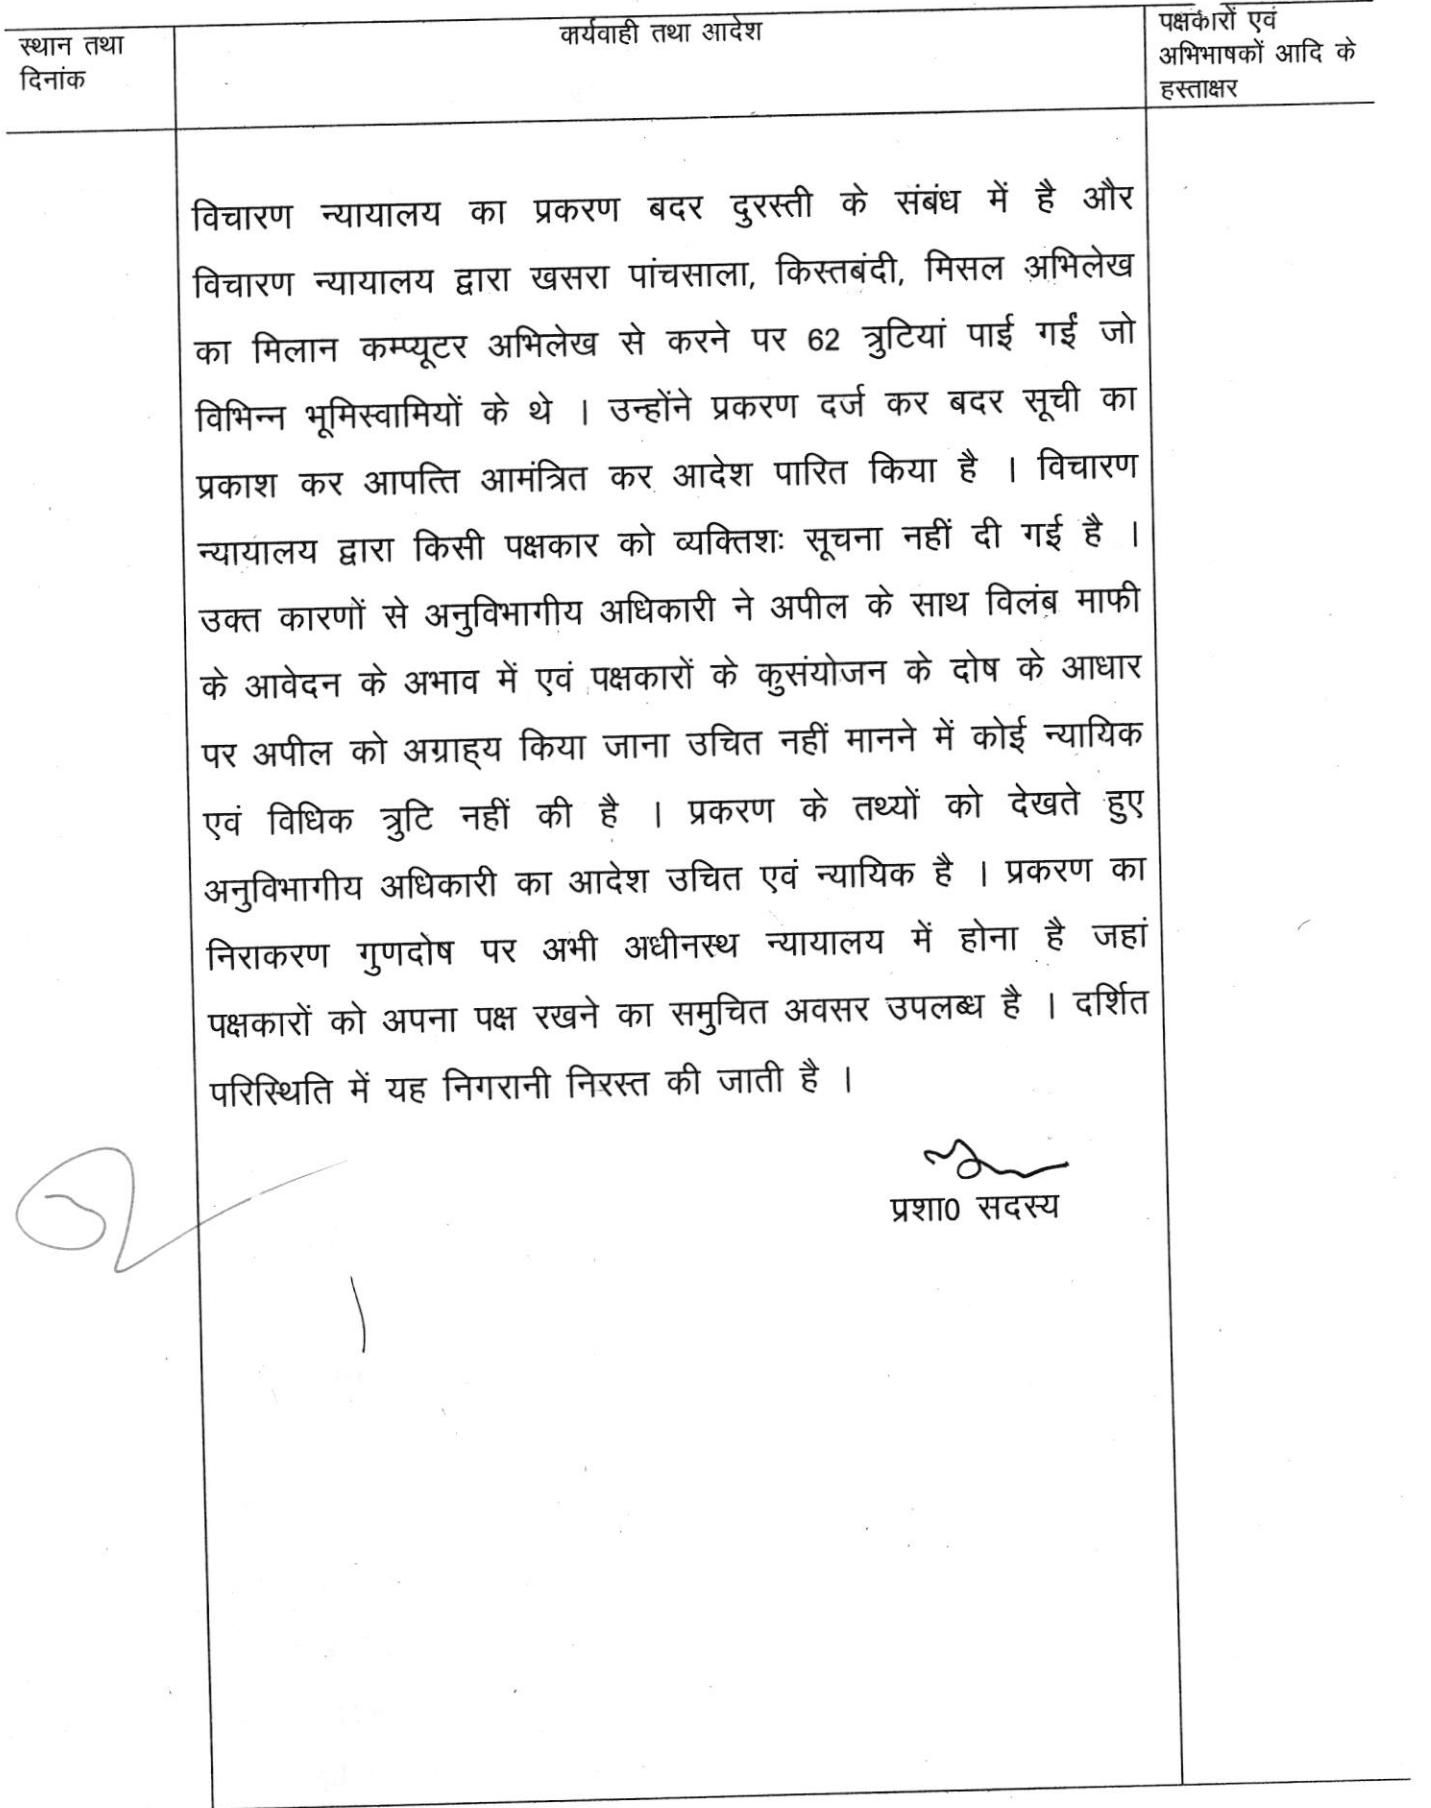 स्थान तथा
दिनांक
कार्यवाही तथा आदेश
पक्षकारों एवं
अभिभाषकों आदि के
हस्ताक्षर
विचारण न्यायालय का प्रकरण बदर दुरस्ती के संबंध में है और
विचारण न्यायालय द्वारा खसरा पांचसाला, किस्तबंदी, मिसल अभिलेख
का मिलान कम्प्यूटर अभिलेख से करने पर 62 त्रुटियां पाई गईं जो
विभिन्न भूमिस्वामियों के थे । उन्होंने प्रकरण दर्ज कर बदर सूची का
प्रकाश कर आपत्ति आमंत्रित कर आदेश पारित किया है । विचारण
न्यायालय द्वारा किसी पक्षकार को व्यक्तिशः सूचना नहीं दी गई है ।
उक्त कारणों से अनुविभागीय अधिकारी ने अपील के साथ विलंब माफी
के आवेदन के अभाव में एवं पक्षकारों के कुसंयोजन के दोष के आधार
पर अपील को अग्राह्य किया जाना उचित नहीं मानने में कोई न्यायिक
एवं विधिक त्रुटि नहीं की है । प्रकरण के तथ्यों को देखते हुए
अनुविभागीय अधिकारी का आदेश उचित एवं न्यायिक है । प्रकरण का
निराकरण गुणदोष पर अभी अधीनस्थ न्यायालय में होना है जहां
पक्षकारों को अपना पक्ष रखने का समुचित अवसर उपलब्ध है । दर्शित
परिस्थिति में यह निगरानी निरस्त की जाती है ।
प्रशा0 सदस्य